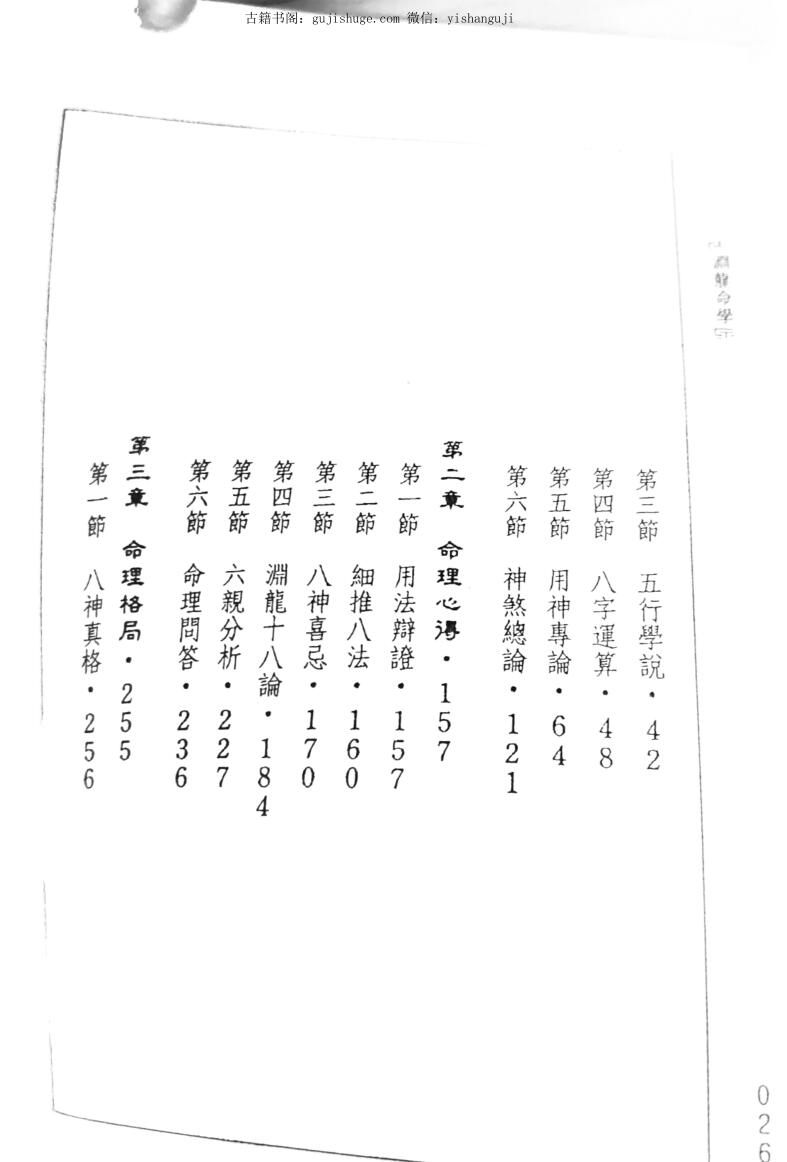 古籍书阁：gujishuge.com 微信：yishanguji
淵龍命學
第三節 五行學說・42
第四節 八字運算・48
第五節 用神專論・64
第六節 神煞總論・121
第二章 命理心得・157
第一節 用法辯證・157
第二節 細推八法・160
第三節 八神喜忌・170
第四節 淵龍十八論・184
第五節 六親分析・227
第六節 命理問答・236
第三章 命理格局・255
第一節 八神真格・256
026